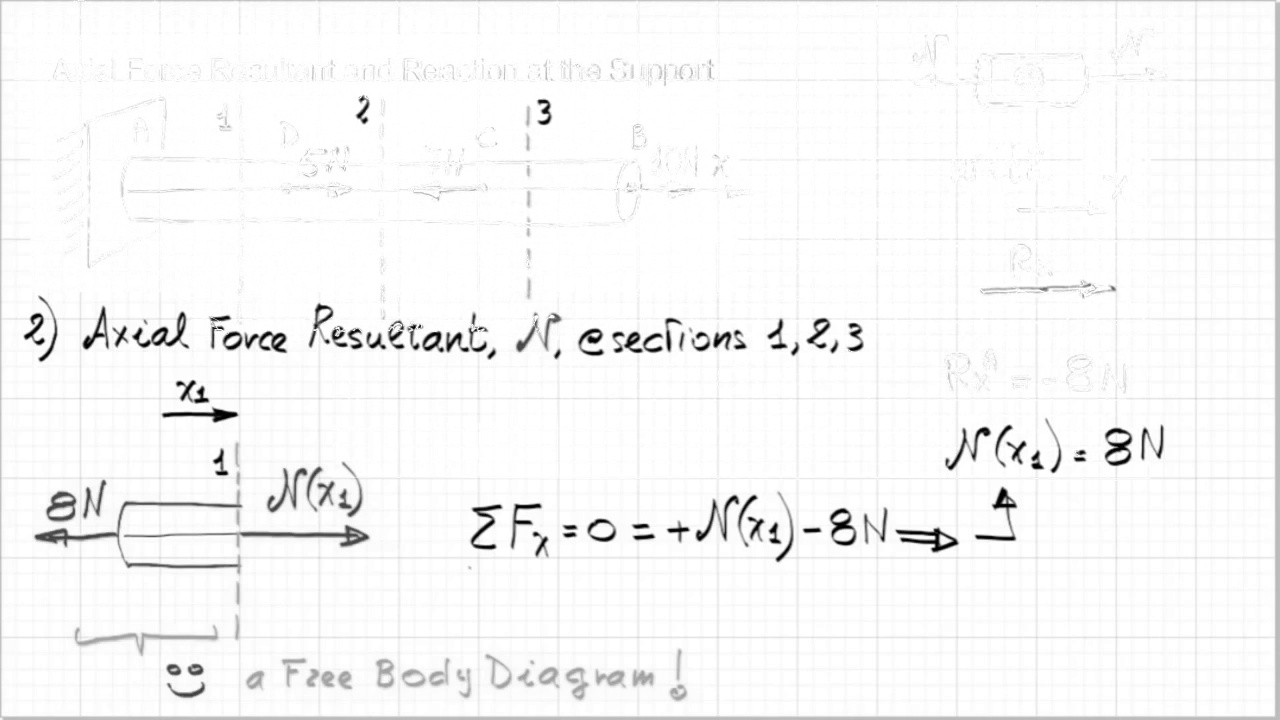 Axial Force Resultant and Reaction at the Support
N N
1 2 3
A D C B
5N 7N 10N x
2) Axial Force Resultant, N, @ sections 1, 2, 3
x1
Rx^A = -8N
N(x1) = 8N
1
8N N(x1)
ΣFx = 0 = +N(x1) - 8N ⇒
a Free Body Diagram!